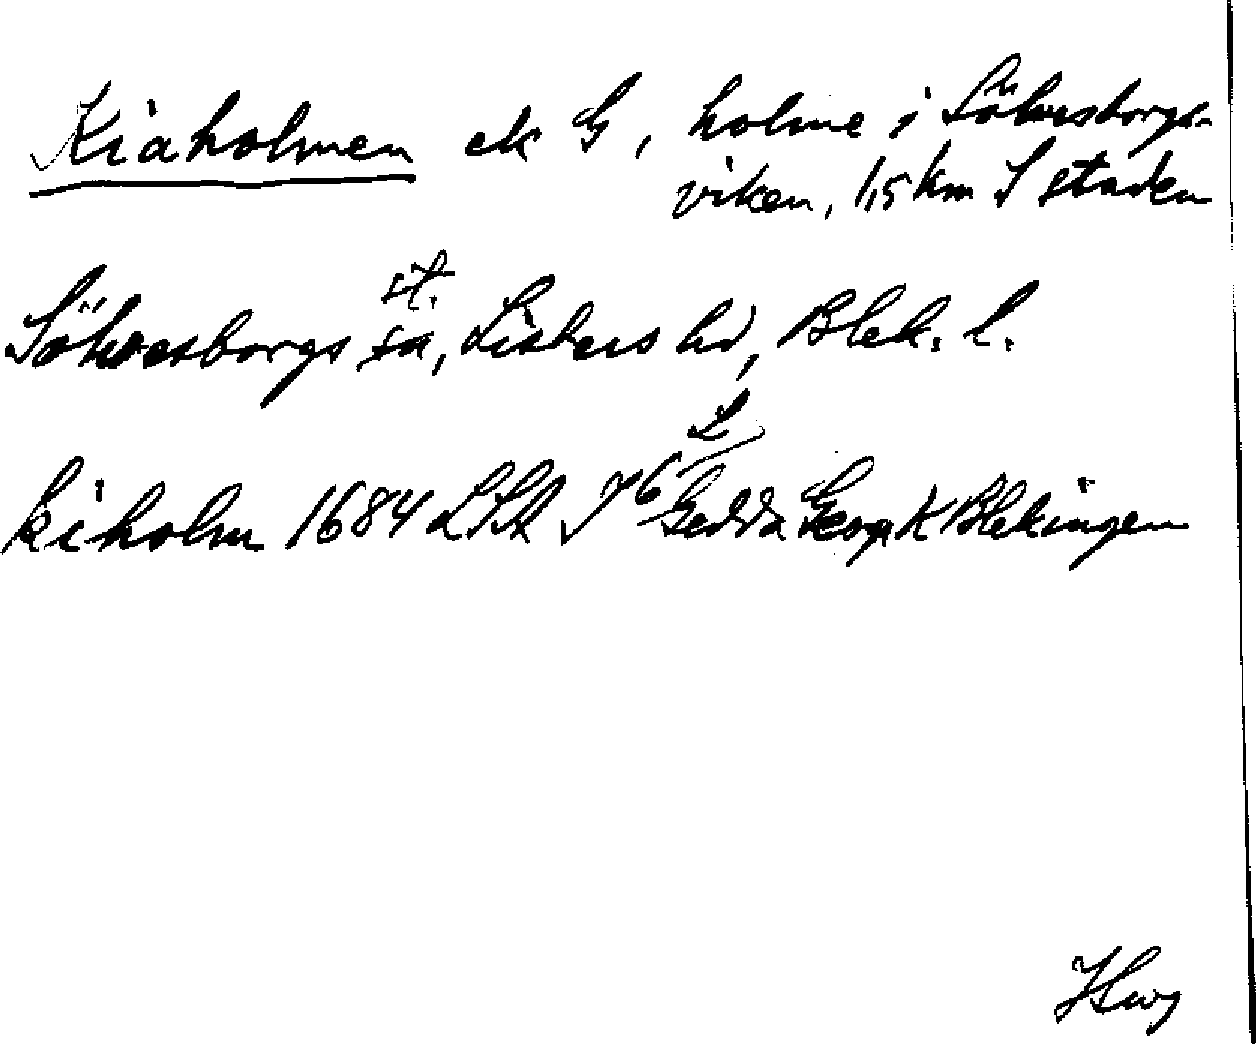 Kiaholmen ek G, holme i Sölvesborgs-
viken, 1,5 km S staden
st.
Sölvesborgs sn, Listers hd, Blek. l.
L
kiholm 1684 LSA I 76 Gedda Geogr K Blekingen